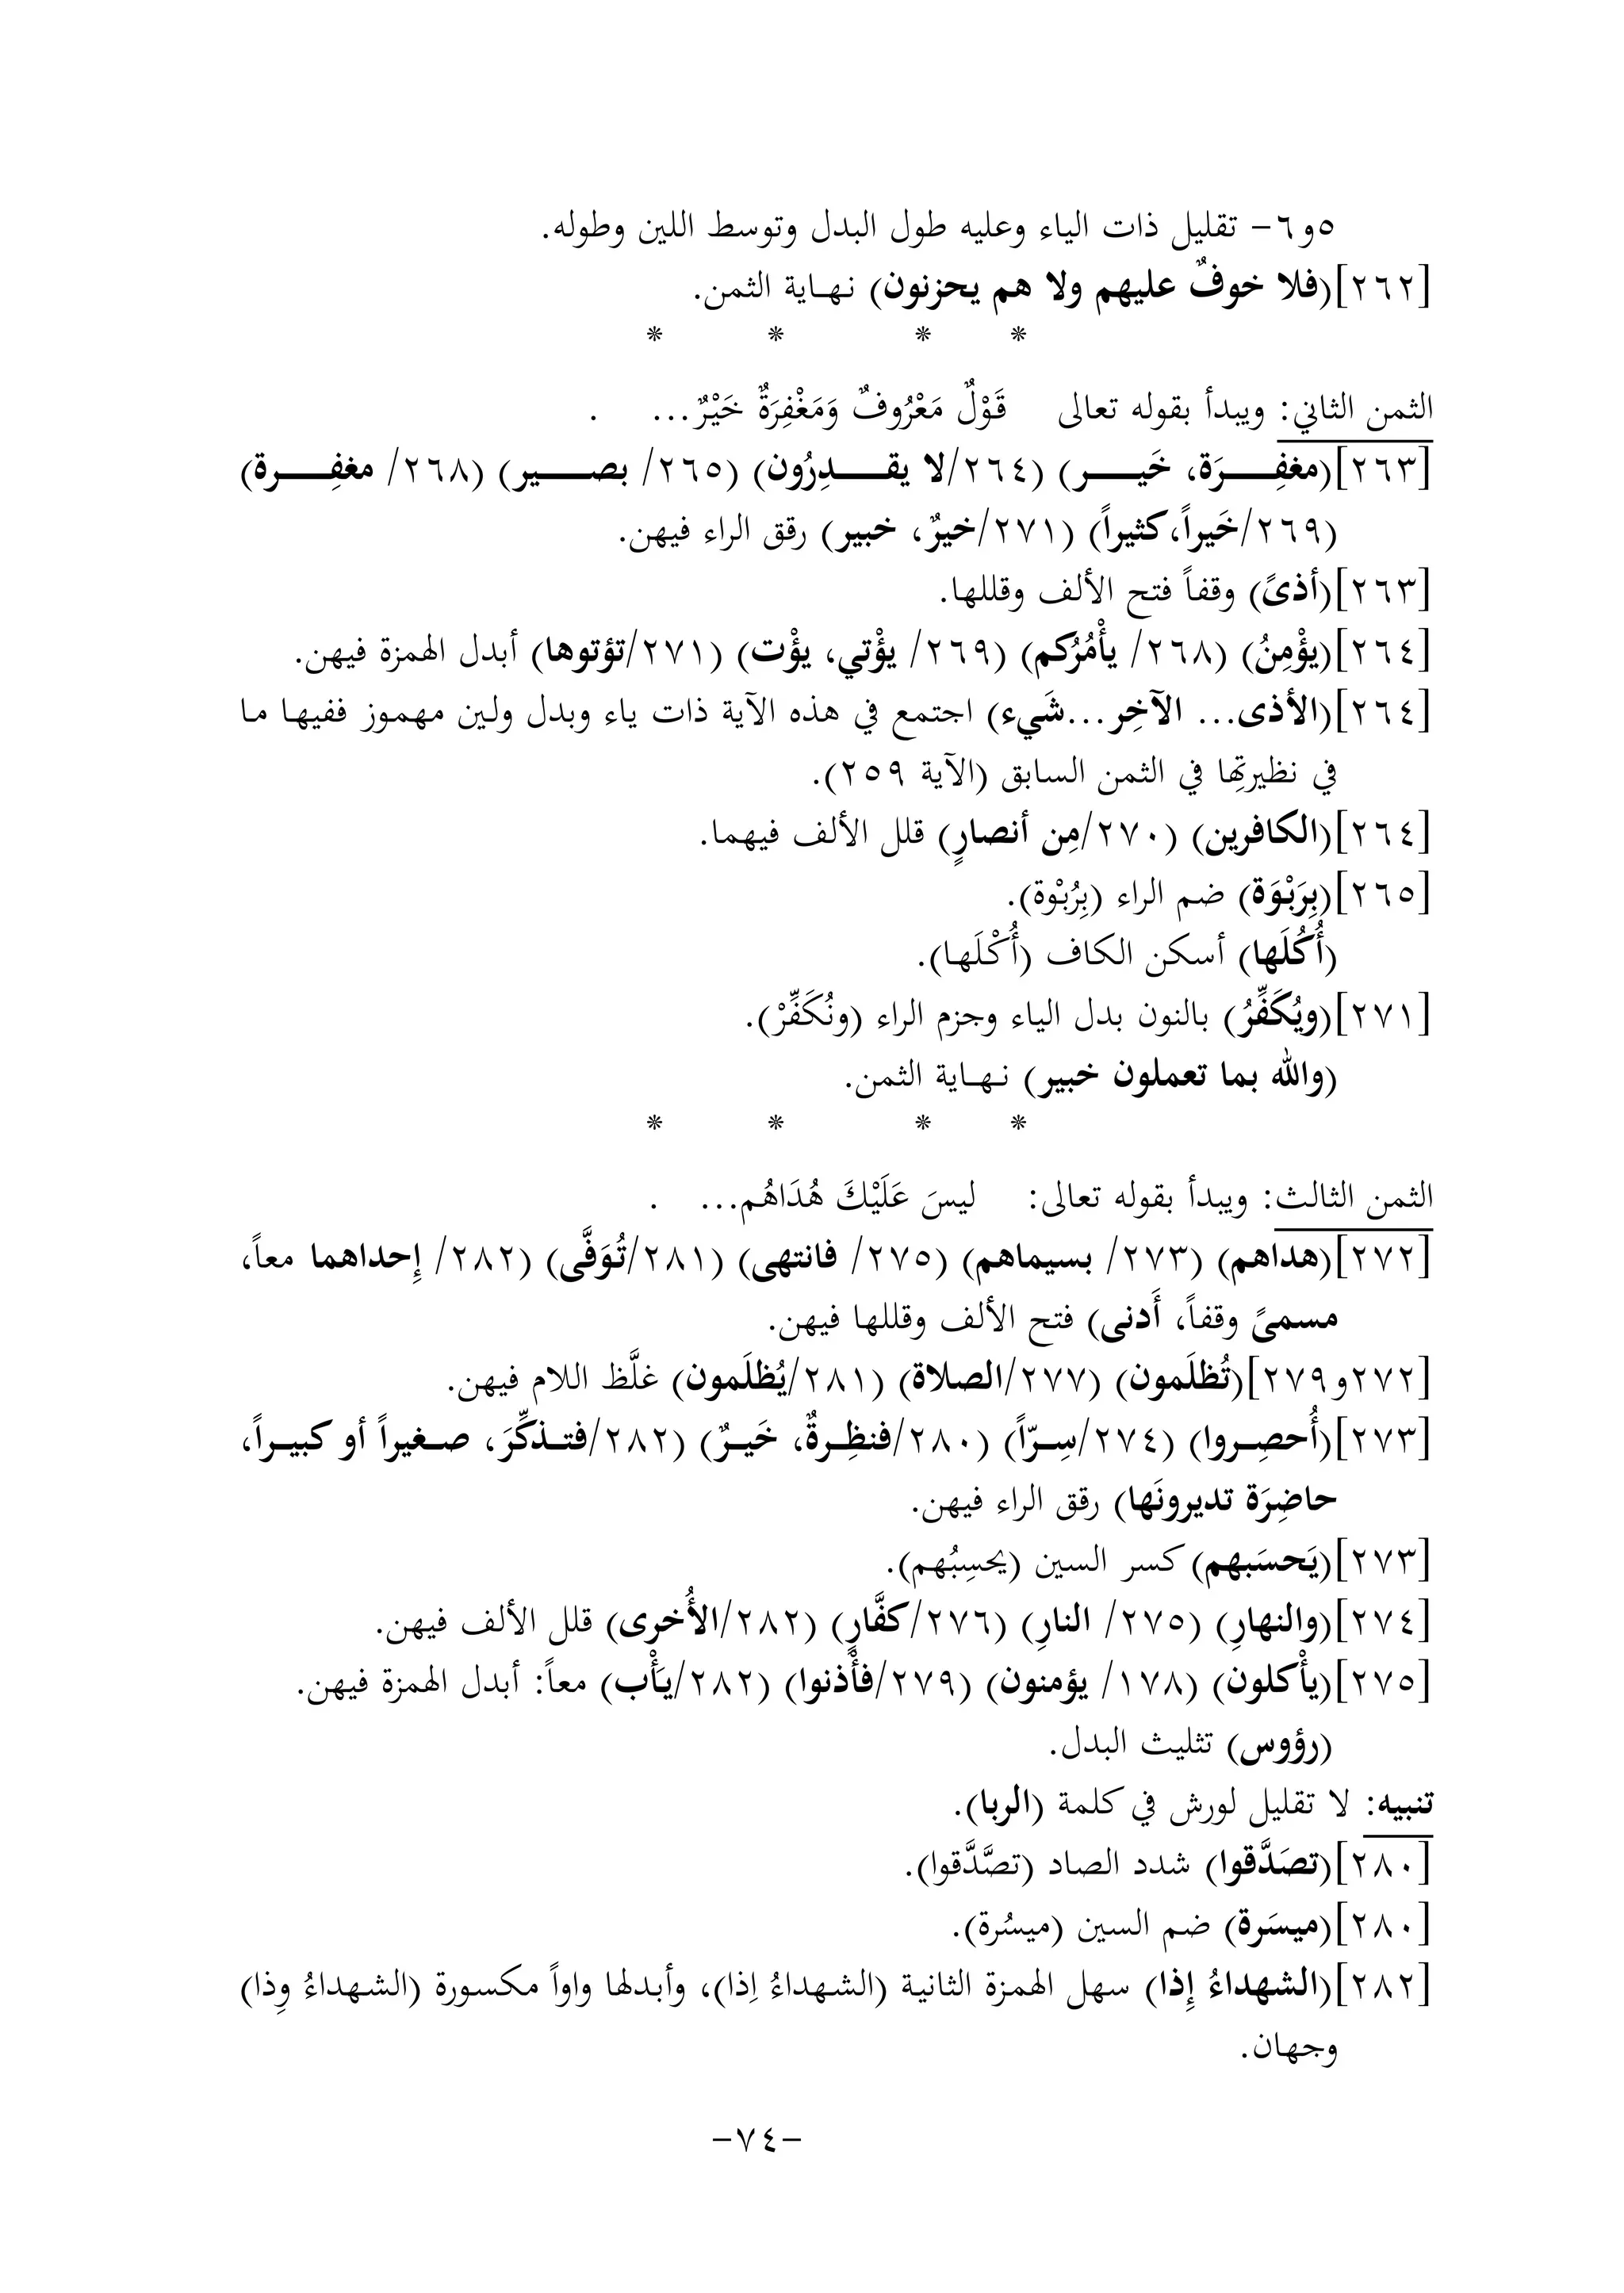 ٥و٦- تقليل ذات الياء وعليه طول البدل وتوسط اللين وطوله.
[٢٦٢](فلا خوفٌ عليهم ولا هم يحزنون) نهاية الثمن.
* * * *
الثمن الثاني: ويبدأ بقوله تعالى قَوْلٌ مَعْرُوفٌ وَمَغْفِرَةٌ خَيْرٌ... .
[٢٦٣](مغفِرَة، خَير) (٢٦٤/لا يقدِرُون) (٢٦٥/ بصير) (٢٦٨/ مغفِرة)
(٢٦٩/خَيراً،كثيراً) (٢٧١/خيرٌ، خبير) رقق الراء فيهن.
[٢٦٣](أذىً) وقفاً فتح الألف وقللها.
[٢٦٤](يؤْمِنُ) (٢٦٨/ يأْمُرُكم) (٢٦٩/ يؤْتي، يؤْت) (٢٧١/تؤتوها) أبدل الهمزة فيهن.
[٢٦٤](الأذى... الآخِر...شَيء) اجتمع في هذه الآية ذات ياء وبدل ولين مهموز ففيها ما
في نظيرتِها في الثمن السابق (الآية ٢٥٩).
[٢٦٤](الكافرين) (٢٧٠/مِن أنصارٍ) قلل الألف فيهما.
[٢٦٥](بِرَبْوَة) ضم الراء (بِرُبْوة).
(أُكُلَها) أسكن الكاف (أُكْلَها).
[٢٧١](ويُكَفِّرُ) بالنون بدل الياء وجزم الراء (ونُكَفِّرْ).
(والله بما تعملون خبير) نهاية الثمن.
* * * *
الثمن الثالث: ويبدأ بقوله تعالى: ليسَ عَلَيْكَ هُدَاهُم... .
[٢٧٢](هداهم) (٢٧٣/ بسيماهم) (٢٧٥/ فانتهى) (٢٨١/تُوَفَّى) (٢٨٢/ إِحداهما معاً،
مسمىً وقفاً، أَدنى) فتح الألف وقللها فيهن.
[٢٧٢و٢٧٩](تُظلَمون) (٢٧٧/الصلاة) (٢٨١/يُظلَمون) غلَّظ اللام فيهن.
[٢٧٣](أُحصِروا) (٢٧٤/سِرّاً) (٢٨٠/فنظِرةٌ، خَيرٌ) (٢٨٢/فتذكِّرَ، صغيراً أو كبيراً،
حاضِرَة تديرونَها) رقق الراء فيهن.
[٢٧٣](يَحسَبهم) كسر السين (يحسِبُهم).
[٢٧٤](والنهارِ) (٢٧٥/ النارِ) (٢٧٦/كفَّارٍ) (٢٨٢/الأُخرى) قلل الألف فيهن.
[٢٧٥](يأْكلون) (١٧٨/ يؤمنون) (٢٧٩/فأْذنوا) (٢٨٢/يَأْب) معاً: أبدل الهمزة فيهن.
(رؤوس) تثليث البدل.
تنبيه: لا تقليل لورش في كلمة (الربا).
[٢٨٠](تصَدَّقوا) شدد الصاد (تصَّدَّقوا).
[٢٨٠](ميسَرة) ضم السين (ميسُرة).
[٢٨٢](الشهداءُ إِذا) سهل الهمزة الثانية (الشهداءُ اِذا)، وأبدلها واواً مكسورة (الشهداءُ وِذا)
وجهان.
-٧٤-